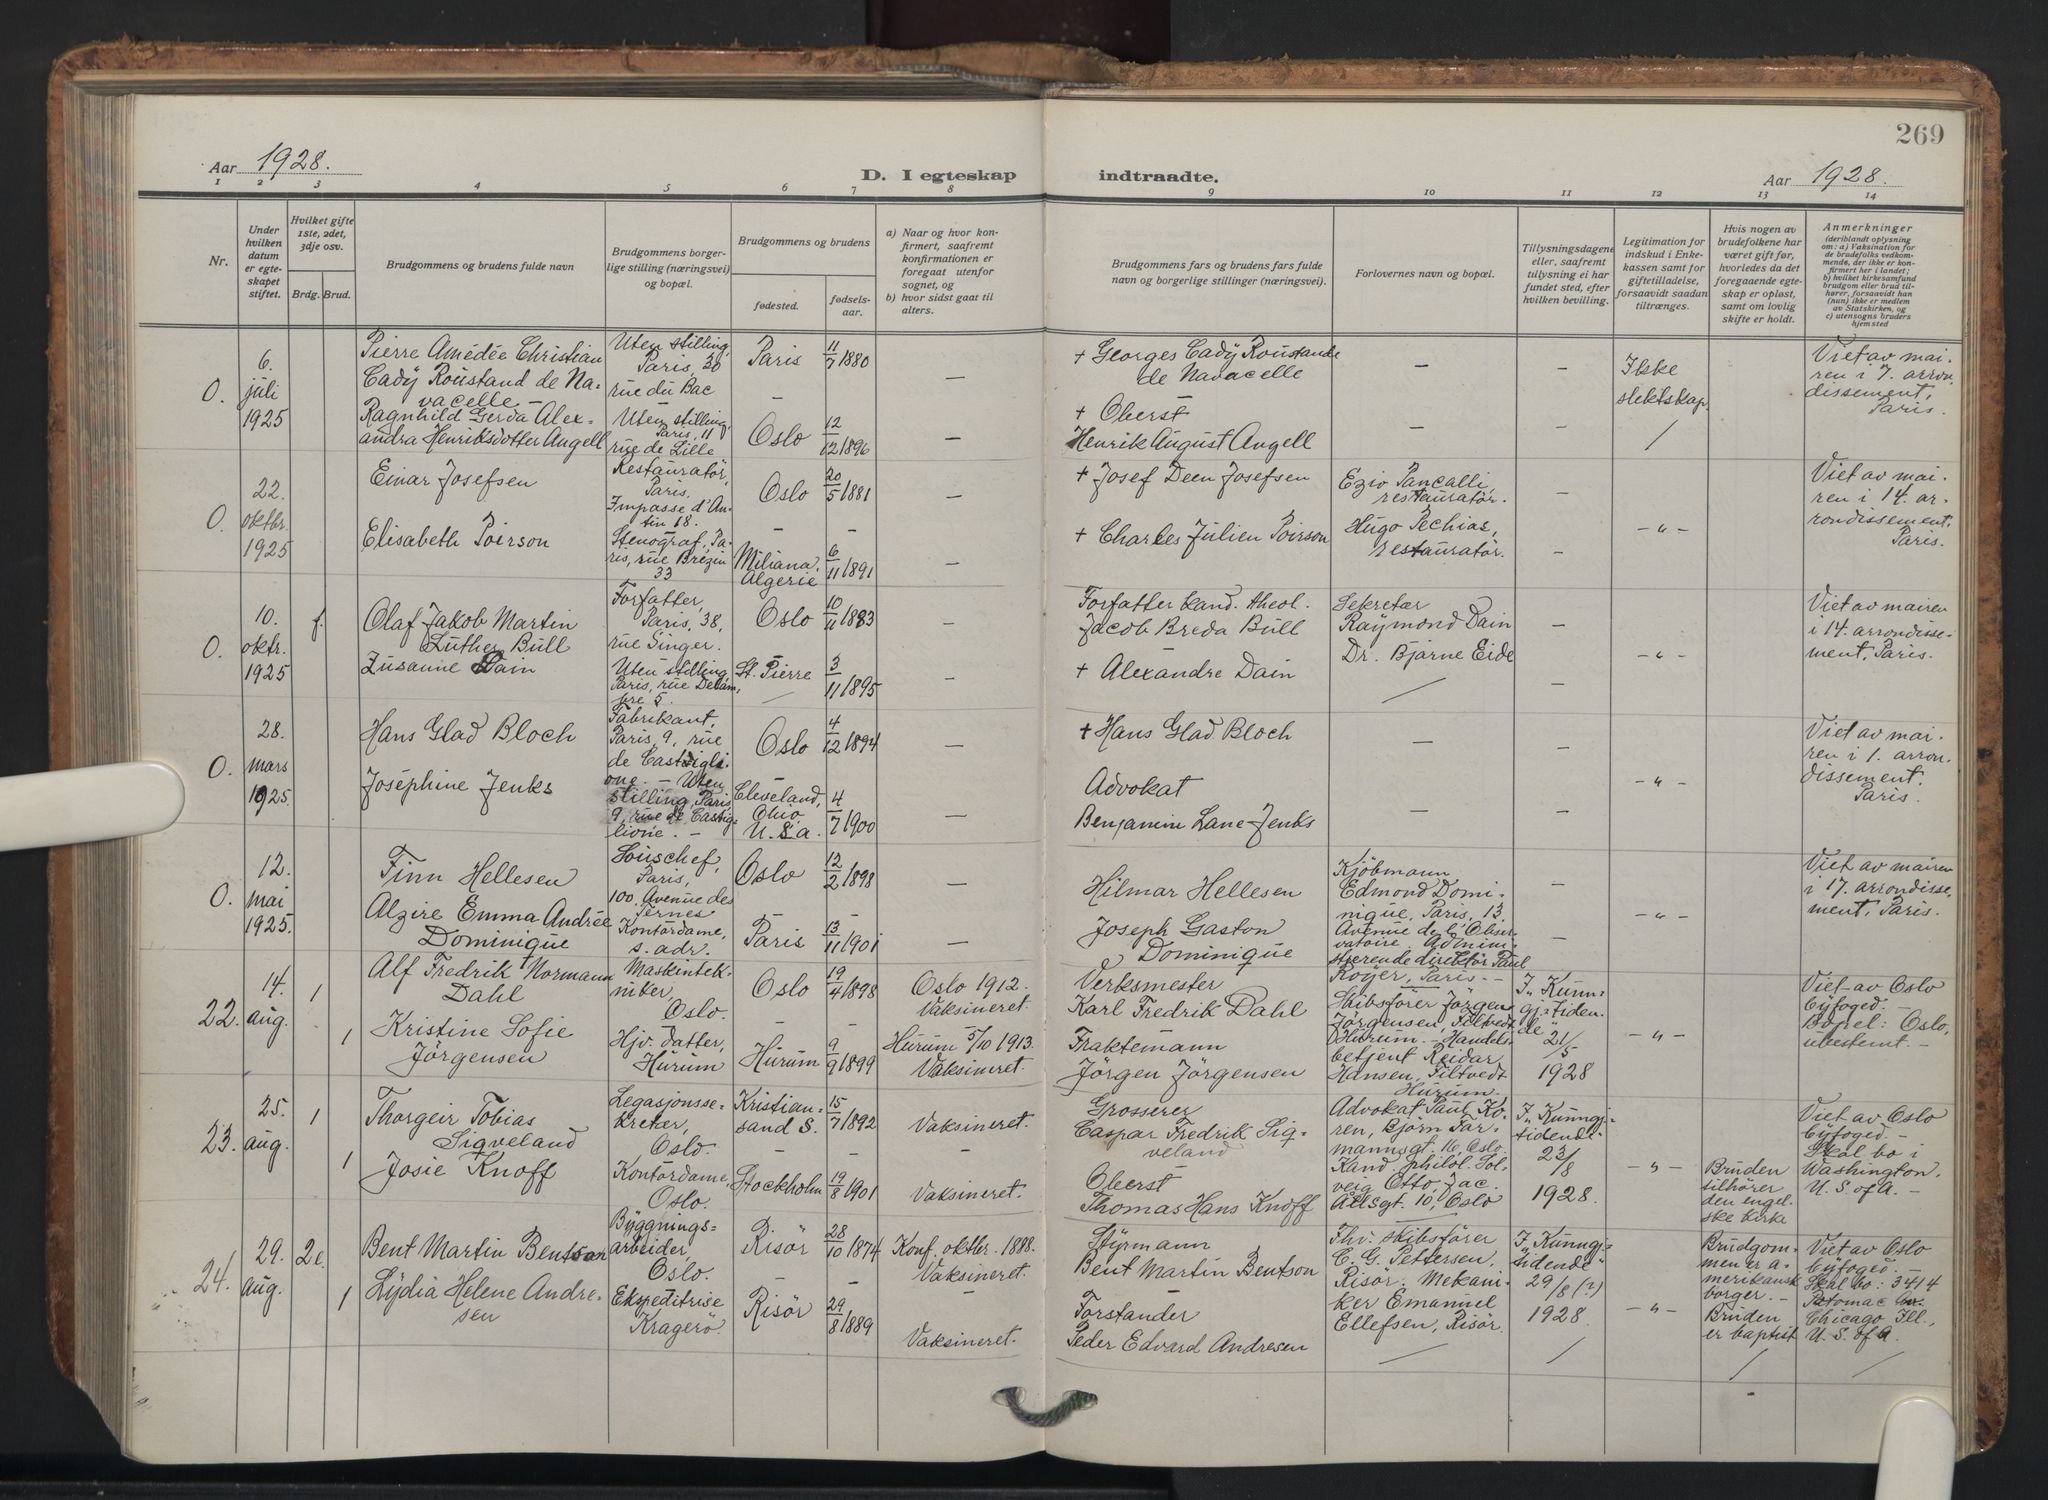 269
Aar 1928.
D. I egteskap indtraadte.
Aar 1928.
1 2 3 4 5 6 7 8 9 10 11 12 13 14
Nr.
Under hvilken datum er egteskapet stiftet.
Hvilket gifte 1ste, 2det, 3dje osv.
Brdg. Brud.
Brudgommens og brudens fulde navn
Brudgommens borgerlige stilling (næringsvei) og bopæl.
Brudgommens og brudens
fødested.
fødselsaar.
a) Naar og hvor konfirmert, saafremt konfirmationen er foregaat utenfor sognet, og
b) hvor sidst gaat til alters.
Brudgommens fars og brudens fars fulde navn og borgerlige stillinger (næringsvei).
Forlovernes navn og bopæl.
Tillysningsdagene eller, saafremt tillysning ei har fundet sted, efter hvilken bevilling.
Legitimation for indskud i Enkekassen samt for giftetilladelse, forsaavidt saadan tiltrænges.
Hvis nogen av brudefolkene har været gift før, hvorledes da det foregaaende egteskap er opløst, samt om lovlig skifte er holdt.
Anmerkninger
(deriblandt oplysning om: a) Vaksination for de brudefolks vedkommende, der ikke er konfirmert her i landet; b) hvilket kirkesamfund brudgom eller brud tilhører, forsaavidt han (hun) ikke er medlem av Statskirken, og c) utensogns bruders hjemsted
O.
6. juli 1925
Pierre Amédée Christian
Cadÿ Roustand de Na-
vacelle
Uten stilling,
Paris, 30
rue du Bac
Paris
11/7 1880
—
+ Georges Cadÿ Roustande
de Navacelle
—
—
Ikke
slektskap.
Viet av mai-
ren i 7. arron-
dissement,
Paris.
Ragnhild Gerda Alex-
andra Henriksdotter Angell
Uten stilling,
Paris, 11
rue de Lille
Oslo
12/12 1896
—
+ Oberst
Henrik August Angell
—
—
O.
22. oktbr. 1925
Einar Josefsen
Restauratør,
Paris.
Impasse d'An-
tin 68.
Oslo
20/5 1881
—
+ Josef Deen Josefsen
Ezio Pancalli
restauratør.
—
-"-
Viet av mai-
ren i 14. ar-
rondissement,
Paris.
Elisabeth Poirson
Stenograf, Pa-
ris, rue Brezin
33
Miliana,
Algerie
6/11 1891
—
+ Charles Julien Poirson
Hugo Pechias,
restauratør.
—
O.
10. oktr. 1925
f.
Olaf Jakob Martin
Luther Bull
Forfatter,
Paris, 38,
rue Singer.
Oslo
10/11 1883
—
Forfatter kand. theol.
Jacob Breda Bull
Sekretær
Raymond Dain
Dr. Bjarne Eide
—
-"-
Viet av mairen
i 14. arrondisse-
ment, Paris.
Zusanne Dain
Uten stilling,
Paris, rue Delam-
bre 5.
St. Pierre
3/11 1895
—
+ Alexandre Dain
—
O.
28. mars 1925.
Hans Glad Bloch
Fabrikant,
Paris, 9, rue
de Castigli-
one. —
Oslo
4/12 1894
—
+ Hans Glad Bloch
—
—
-"-
Viet av mai-
ren i 1. arron-
dissement,
Paris.
Joséphine Jenks
Uten
stilling, Paris
9, rue de Castig-
lione. —
Cleveland,
Ohio
U.S.a.
4/7 1900
—
Advokat
Benjamin Lane Jenks
—
—
O.
12. mai 1925.
Finn Hellesen
Souschef,
Paris,
100. Avenue des
Ternes
Oslo
12/2 1898
—
Hilmar Hellesen
Kjøbmann
Edmond Domi-
nique, Paris, 13.
Avenue de l'Obser-
vatoire. Admini-
strerende direktør Paul
Royer, Paris. —
—
-"-
Viet av mairen
i 17. arrondisse-
ment, Paris.
Alzire Emma Andrée
Dominique
Kontordame,
s. adr.
Paris
13/11 1901
—
Joseph Gaston
Dominique
—
22.
14. aug.
1
Alf Fredrik Normann
Dahl
Maskintek-
niker,
Oslo.
Oslo
19/4 1898
Oslo 1912.
Vaksineret.
Verksmester
Karl Fredrik Dahl
Skibsfører Jörgen
Jörgensen, Filtvedt
Hurum. Handels-
betjent Reidar
Hansen, Filtvedt
Hurum.
I „Kunn-
gj. tiden-
de"
21/5
1928
-"-
Viet av Oslo
byfoged. —
Bopel: Oslo,
ubestemt. —
1
Kristine Sofie
Jörgensen
Hjv. datter,
Hurum
Hurum
9/9 1899
Hurum 5/10 1913.
Vaksineret.
Fraktemann
Jörgen Jörgensen
23.
25. aug.
1
Thorgeir Tobias
Sigveland
Legasjonsse-
kretær,
Oslo.
Kristian-
sand S.
15/7 1892
Vaksineret.
Grosserer
Caspar Fredrik Sig-
veland
Advokat Paul Ko-
ren, Björn Far-
mannsgt. 16, Oslo.
Kand. philol. Sol-
veig Otto, Jac.
Aallsgt. 10, Oslo
I „Kunngj-
tidende"
23/8
1928.
-"-
Viet av Oslo
byfoged. —
Skal bo i
Washington.
U. S. of A. —
1
Josie Knoff
Kontordame,
Oslo.
Stockholm
19/8 1901
Vaksineret.
Oberst
Thomas Hans Knoff
Bruden
tilhører
den engel-
ske kirke
24.
29. aug.
2e.
Bent Martin Bentson
Bygnings-
arbeider,
Oslo.
Risör
28/10 1874
Konf. oktbr. 1888.
Vaksineret.
Styrmann
Bent Martin Bentson
Fhv. skibsfører
C. G. Pettersen,
Risör. Mekani-
ker Emanuel
Ellefsen, Risör.
I „Kunngj-
tidende"
29/8 (?)
1928.
-"-
Brudgom-
men er a-
merikansk
borger. —
Bruden
er baptist
Viet av Oslo
byfoged. —
Skal bo: 3414
Potomac Av.
Chicago Ill.,
U. S. of A.
1
Lydia Helene Andre-
sen
Ekspeditrise
Kragerø.
Risör
29/8 1889
Vaksineret.
Forstander
Peder Edvard Andresen